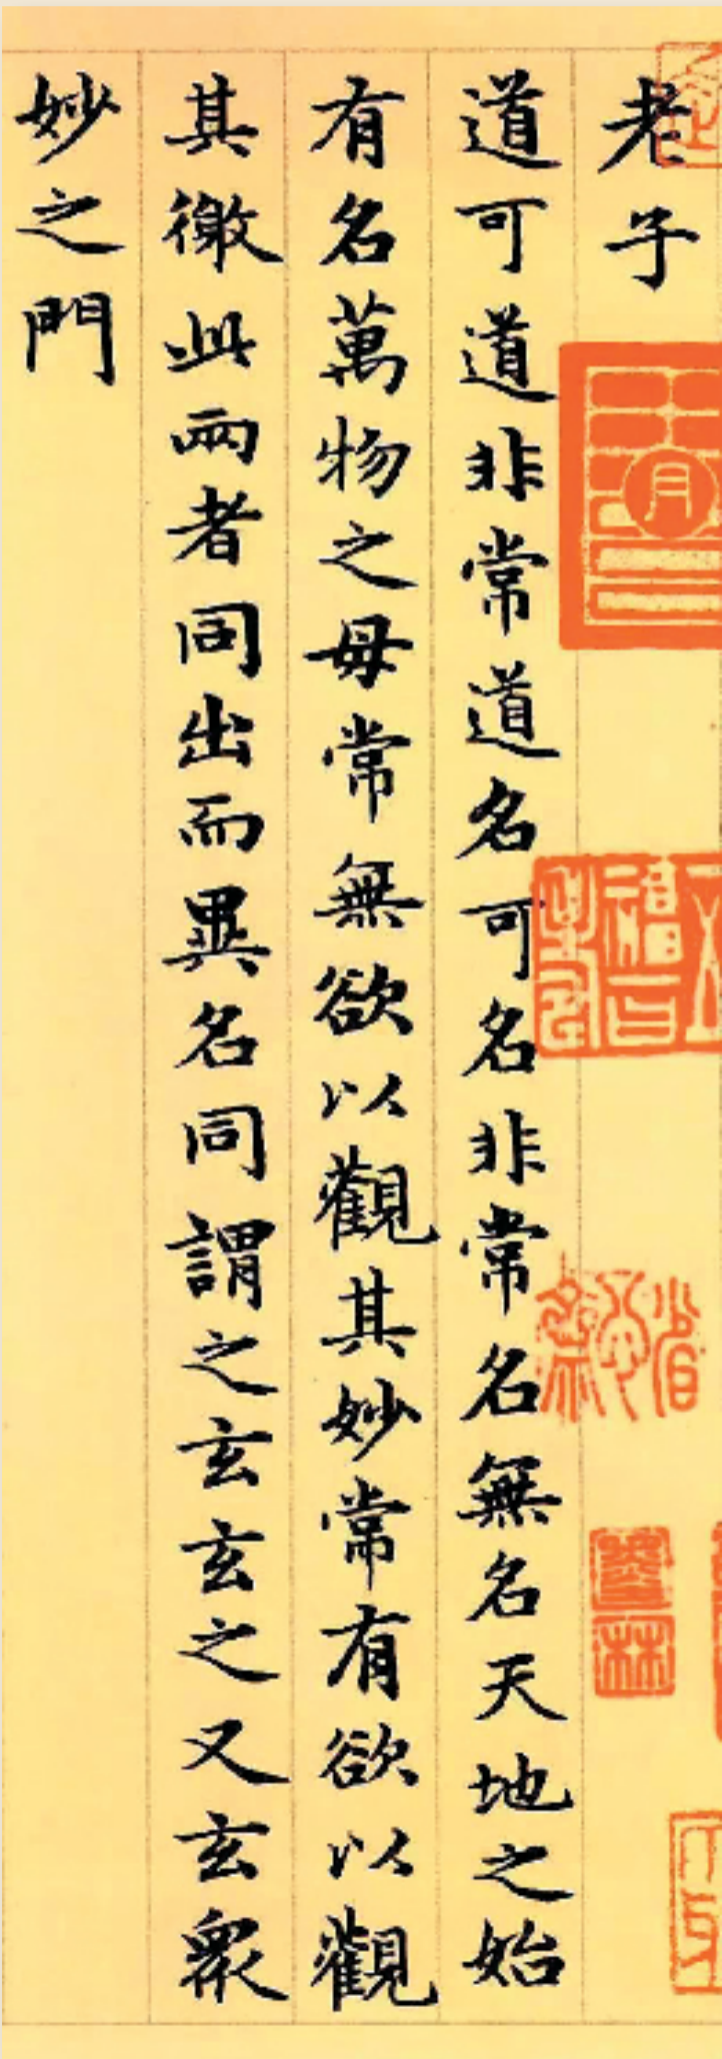 老子
道可道非常道名可名非常名無名天地之始
有名萬物之母常無欲以觀其妙常有欲以觀
其徼此兩者同出而異名同謂之玄玄之又玄衆
妙之門